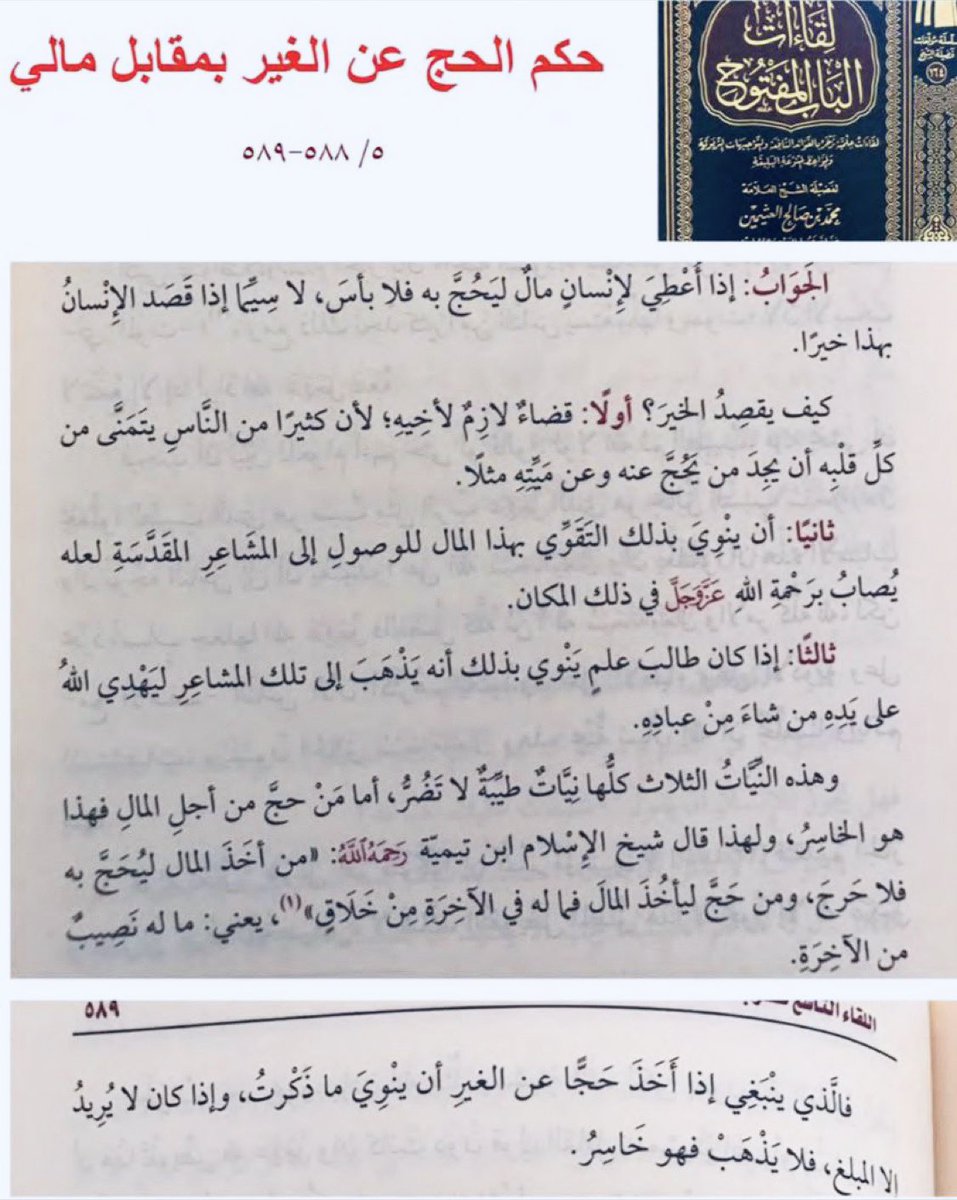 حكم الحج عن الغير بمقابل مالي
٥/ ٥٨٨-٥٨٩
لقاءات
الباب المفتوح
لفضيلة الشيخ العلامة
محمد بن صالح العثيمين
الجَوَابُ: إذا أُعْطِيَ لإِنْسانٍ مالٌ ليَحُجَّ به فلا بأسَ، لا سِيَّما إذا قَصَد الإِنْسانُ
بهذا خيرًا.
كيف يقصِدُ الخيرَ؟ أولًا: قضاءٌ لازِمٌ لأخِيهِ؛ لأن كثيرًا من النَّاسِ يتَمَنَّى من
كلِّ قلْبِه أن يجِدَ من يَحُجَّ عنه وعن مَيِّتِهِ مثلًا.
ثانيًا: أن ينْوِيَ بذلك التَقَوِّي بهذا المال للوصولِ إلى المشَاعِرِ المقَدَّسَةِ لعله
يُصابُ برَحْمةِ اللهِ عَزَّوَجَلَّ في ذلك المكان.
ثالثًا: إذا كان طالبَ علمٍ يَنْوي بذلك أنه يَذْهَبَ إلى تلك المشاعِرِ ليَهْدِي اللهُ
على يَدِهِ من شاءَ مِنْ عبادِهِ.
وهذه النِّيَّاتُ الثلاث كلُّها نِيَّاتٌ طيِّبَةٌ لا تَضُرُّ، أما مَنْ حجَّ من أجلِ المالِ فهذا
هو الخاسِرُ، ولهذا قال شيخ الإِسْلام ابن تيميّة رَحِمَهُ ٱللَّهُ: «من أخَذَ المال ليُحَجَّ به
فلا حَرجَ، ومن حَجَّ ليأخُذَ المالَ فما له في الآخِرَةِ مِنْ خَلَاقٍ»(١)، يعني: ما له نَصِيبٌ
من الآخِرَةِ.
اللقاء التاسع
٥٨٩
فالَّذي ينْبَغِي إذا أَخَذَ حَجًّا عن الغيرِ أن ينْوِيَ ما ذَكْرتُ، وإذا كان لا يُرِيدُ
إلا المبلغ، فلا يَذْهَبْ فهو خَاسِرُ.